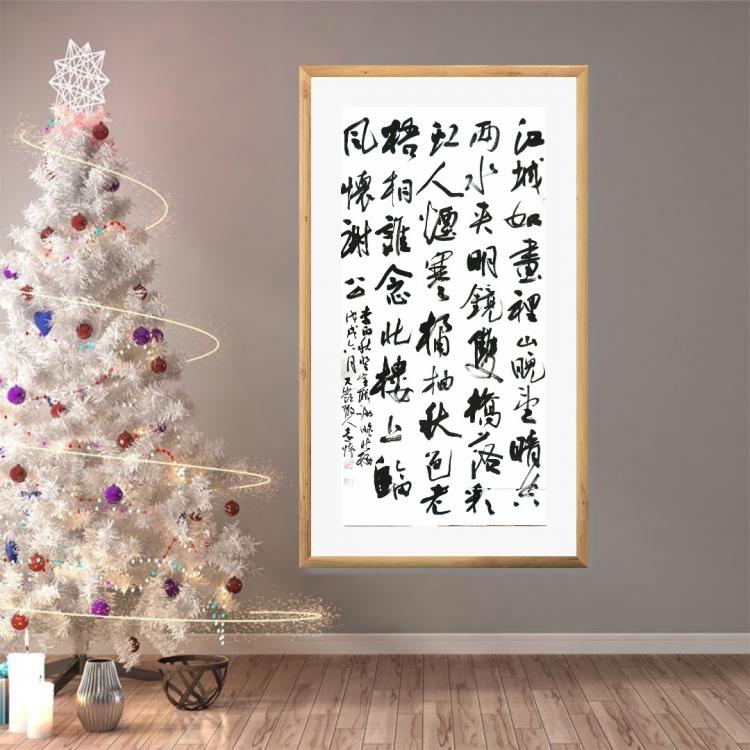 江城如畫裡山晚望晴空
两水夾明鏡雙橋落彩
虹人煙寒橘柚秋色老
梧桐誰念北樓上臨
風懷謝公
李白秋登宣城謝朓北樓
戊戌六月